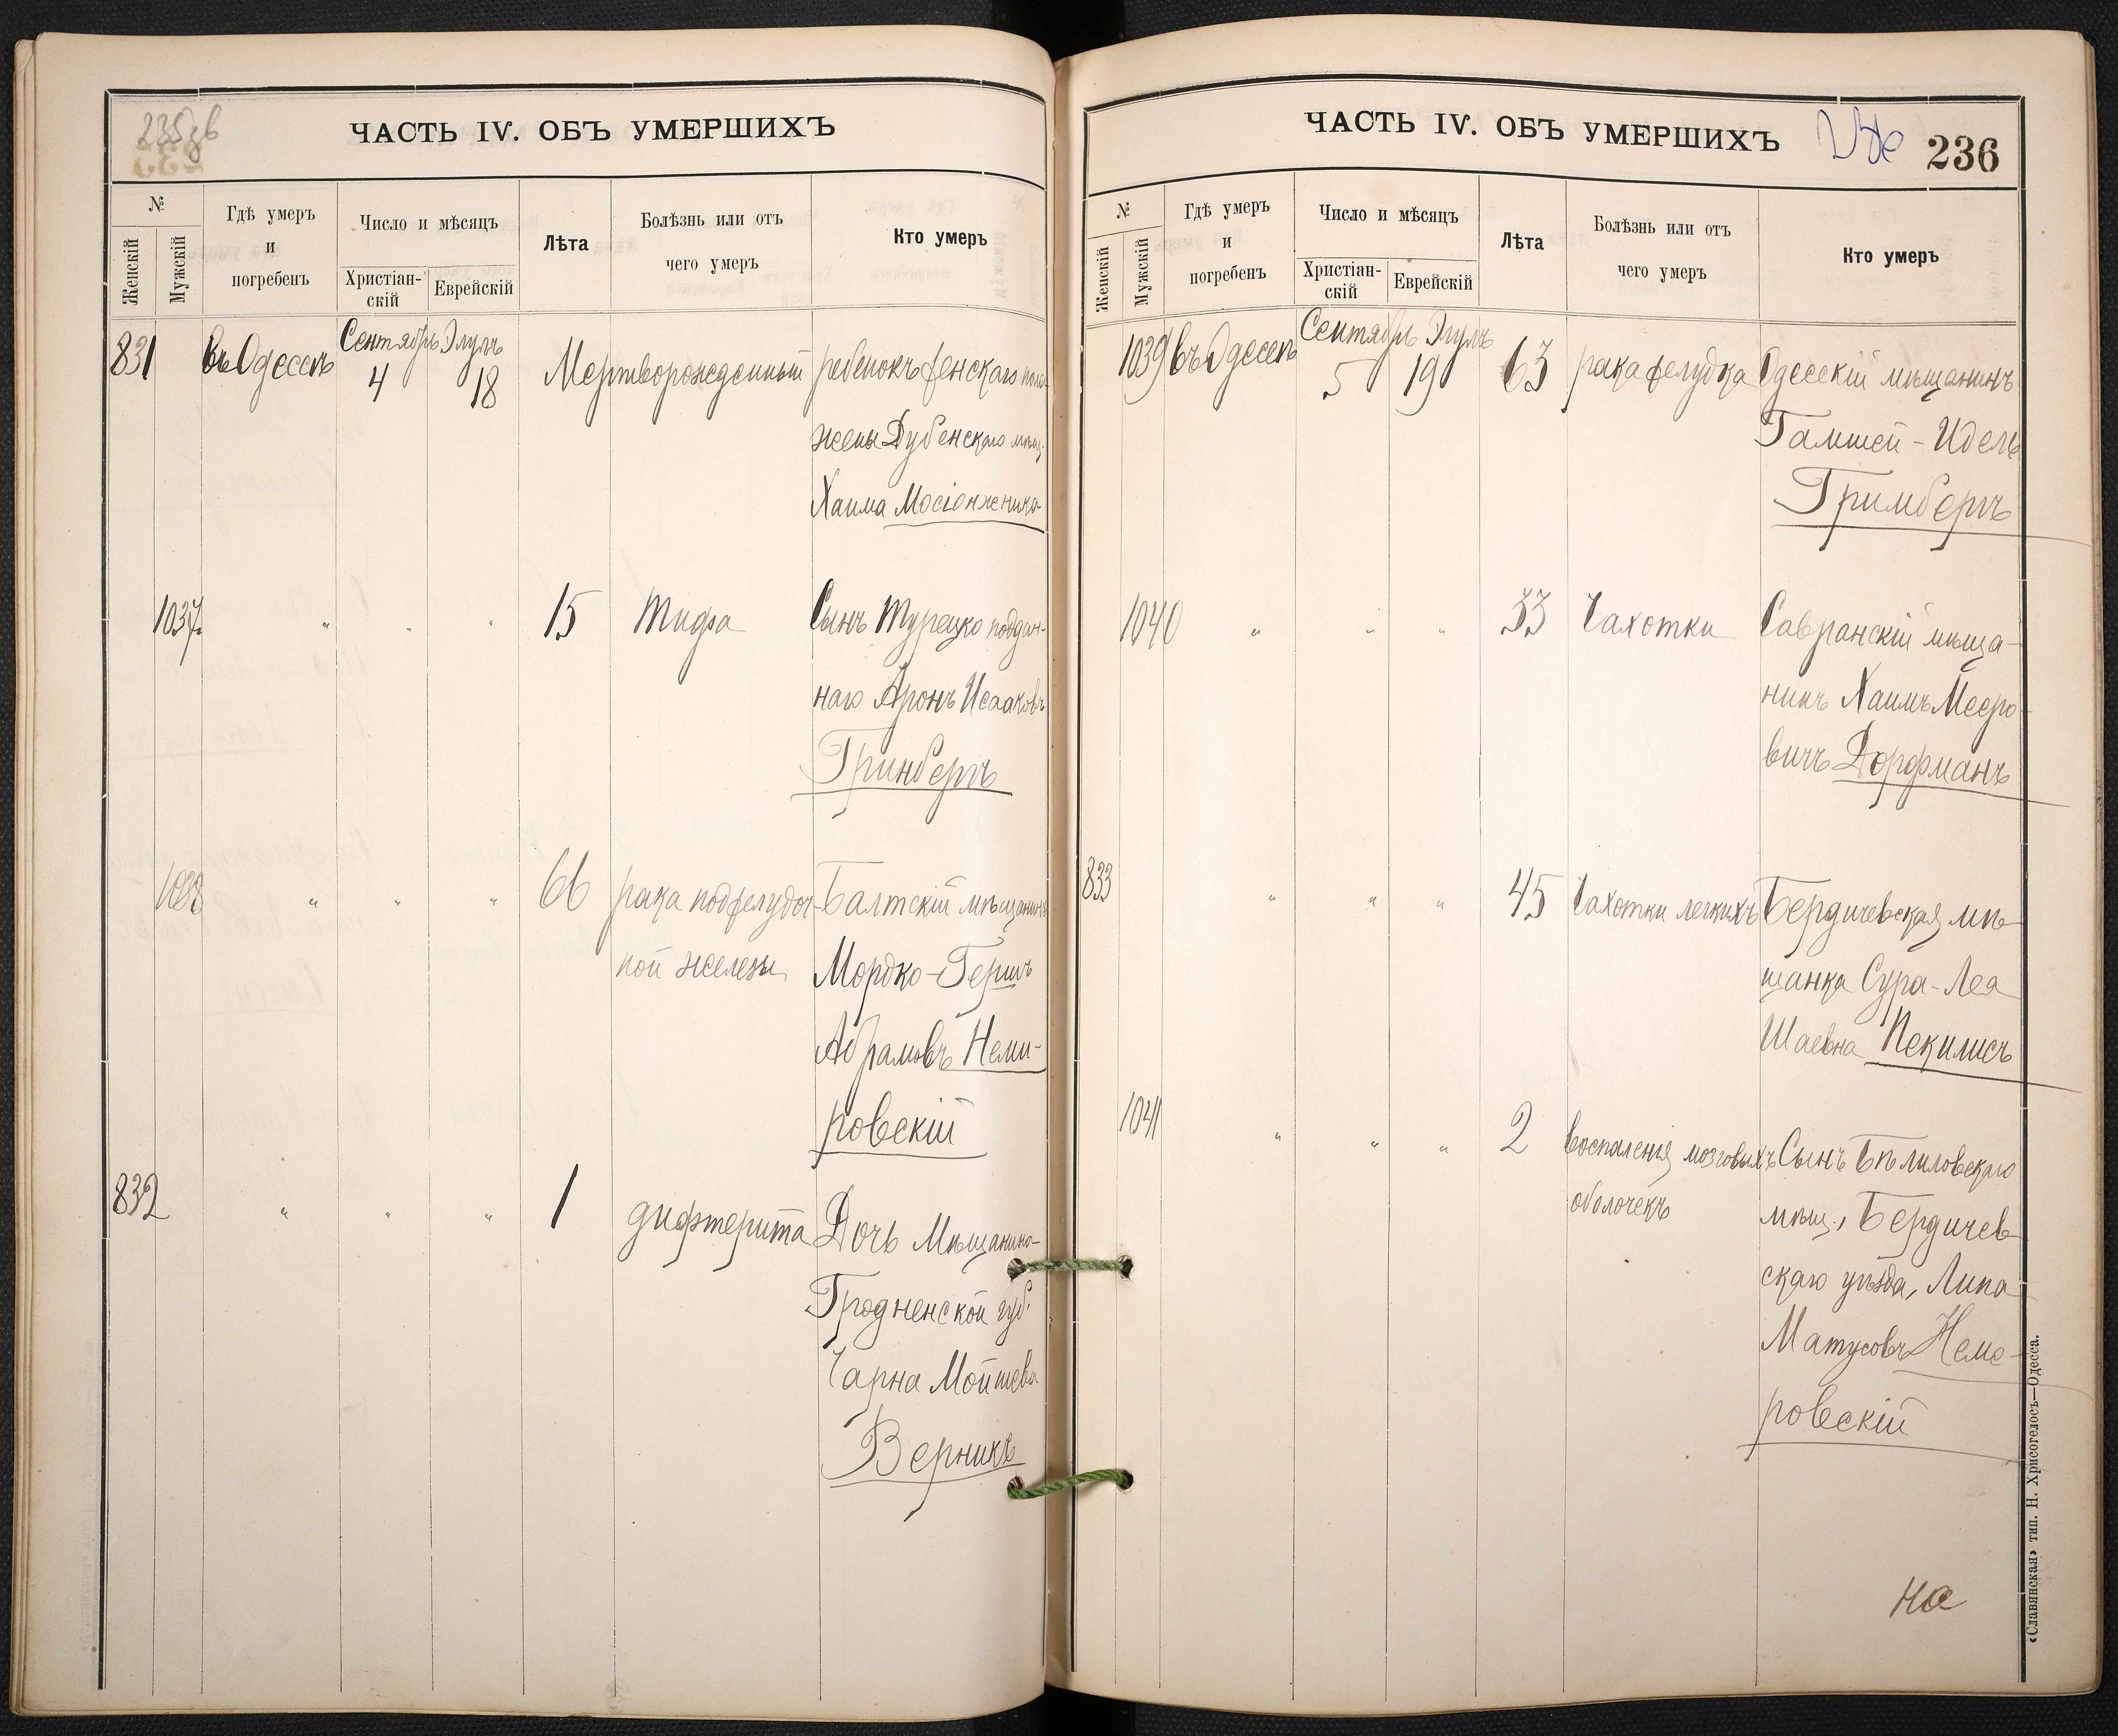 235об
ЧАСТЬ IV. ОБЪ УМЕРШИХЪ
№
Женскій
Мужскій
Гдѣ умеръ
и
погребенъ
Число и мѣсяцъ
Христіан-
скій
Еврейскій
Лѣта
Болѣзнь или отъ
чего умеръ
Кто умеръ
831 въ Одессѣ Сентябрь 4 Элулъ 18 Мертворожденный ребенокъ женскаго пола
жены Дубенскаго мѣщ.
Хаима Мосіонжника
1037 " " " 15 Тифа Сынъ Турецко поддан-
наго Аронъ Исааковъ
Гринбергъ
1038 " " " 66 рака поджелудоч- Балтскій мѣщанинъ
ной железы Мордко-Гершъ
Абрамовъ Неми-
ровскій
832 " " " 1 дифтерита Дочь Мѣщанина
Гродненской губ.
Чарна Мойшева
Верникъ
ЧАСТЬ IV. ОБЪ УМЕРШИХЪ
236
236
№
Женскій
Мужскій
Гдѣ умеръ
и
погребенъ
Число и мѣсяцъ
Христіан-
скій
Еврейскій
Лѣта
Болѣзнь или отъ
чего умеръ
Кто умеръ
1039 въ Одессѣ Сентябрь 5 Элулъ 19 63 рака желудка Одесскій мѣщанинъ
Гамшей-Идель
Гримбергъ
1040 " " " 33 Чахотки Савранскій мѣща-
нинъ Хаимъ Мееро-
вичъ Дорфманъ
833 " " " 45 Чахотки легкихъ Бердичевская мѣ-
щанка Сура-Лея
Шаевна Пекилисъ
1041 " " " 2 воспаленія мозговыхъ Сынъ Бѣлиловскаго
оболочекъ мѣщ., Бердичев-
скаго уѣзда, Липа
Матусовъ Неме-
ровскій
на
«Славянская» тип. Н. Хрисогелосъ—Одесса.